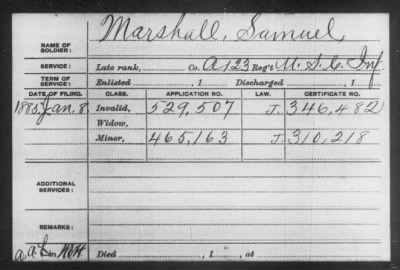 Marshall, Samuel
NAME OF SOLDIER:
SERVICE: Late rank, Co. A, 23 Reg't U.S.C. Inf
TERM OF SERVICE: Enlisted , 1 Discharged , 1
DATE OF FILING. CLASS. APPLICATION NO. LAW. CERTIFICATE NO.
1885, Jan. 8. Invalid, 529,507 J. 346,482
Widow,
Minor, 465,163 J. 310,218
ADDITIONAL SERVICES:
REMARKS:
Died , 1 , at